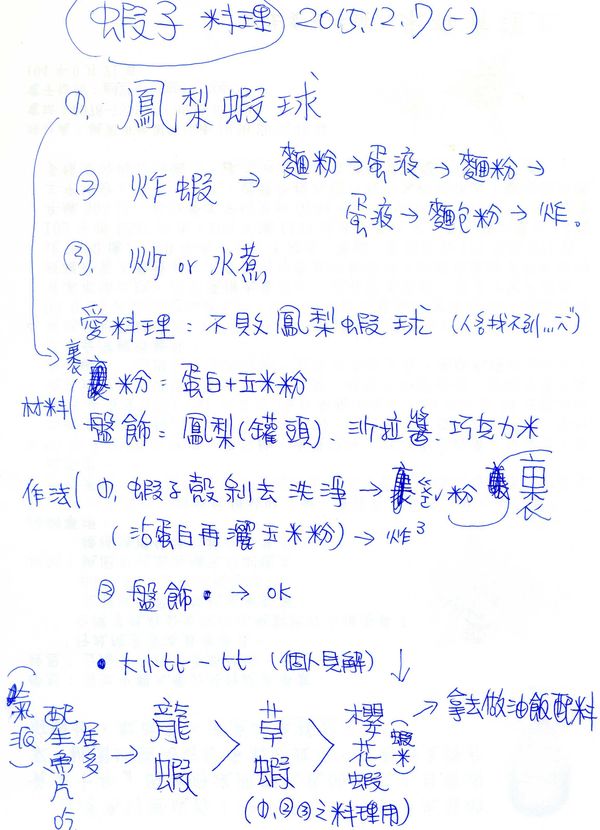 蝦子 料理 2015.12.7(一)
①. 鳳梨蝦球
② 炸蝦 → 麵粉→蛋液→麵粉→
蛋液→麵包粉→炸。
③. 炒 or 水煮
愛料理：不敗鳳梨蝦球
裹粉：蛋白+玉米粉
材料
盤飾：鳳梨(罐頭)、沙拉醬、巧克力米
作法 ①. 蝦子殼剝去洗淨→裹粉 裹
(沾蛋白再灑玉米粉)→炸3
② 盤飾 → OK
• 大小比一比 (個人見解)
(氣派) 配生魚片吃居多 → 龍蝦 > 草蝦 > 櫻花蝦 (蝦米) → 拿去做油飯配料
(①,②③之料理用)